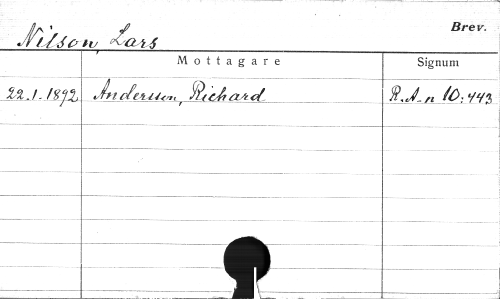 Brev.
Nilson, Lars
Mottagare Signum
22.1.1892 Andersson, Richard R.A-n 10:443